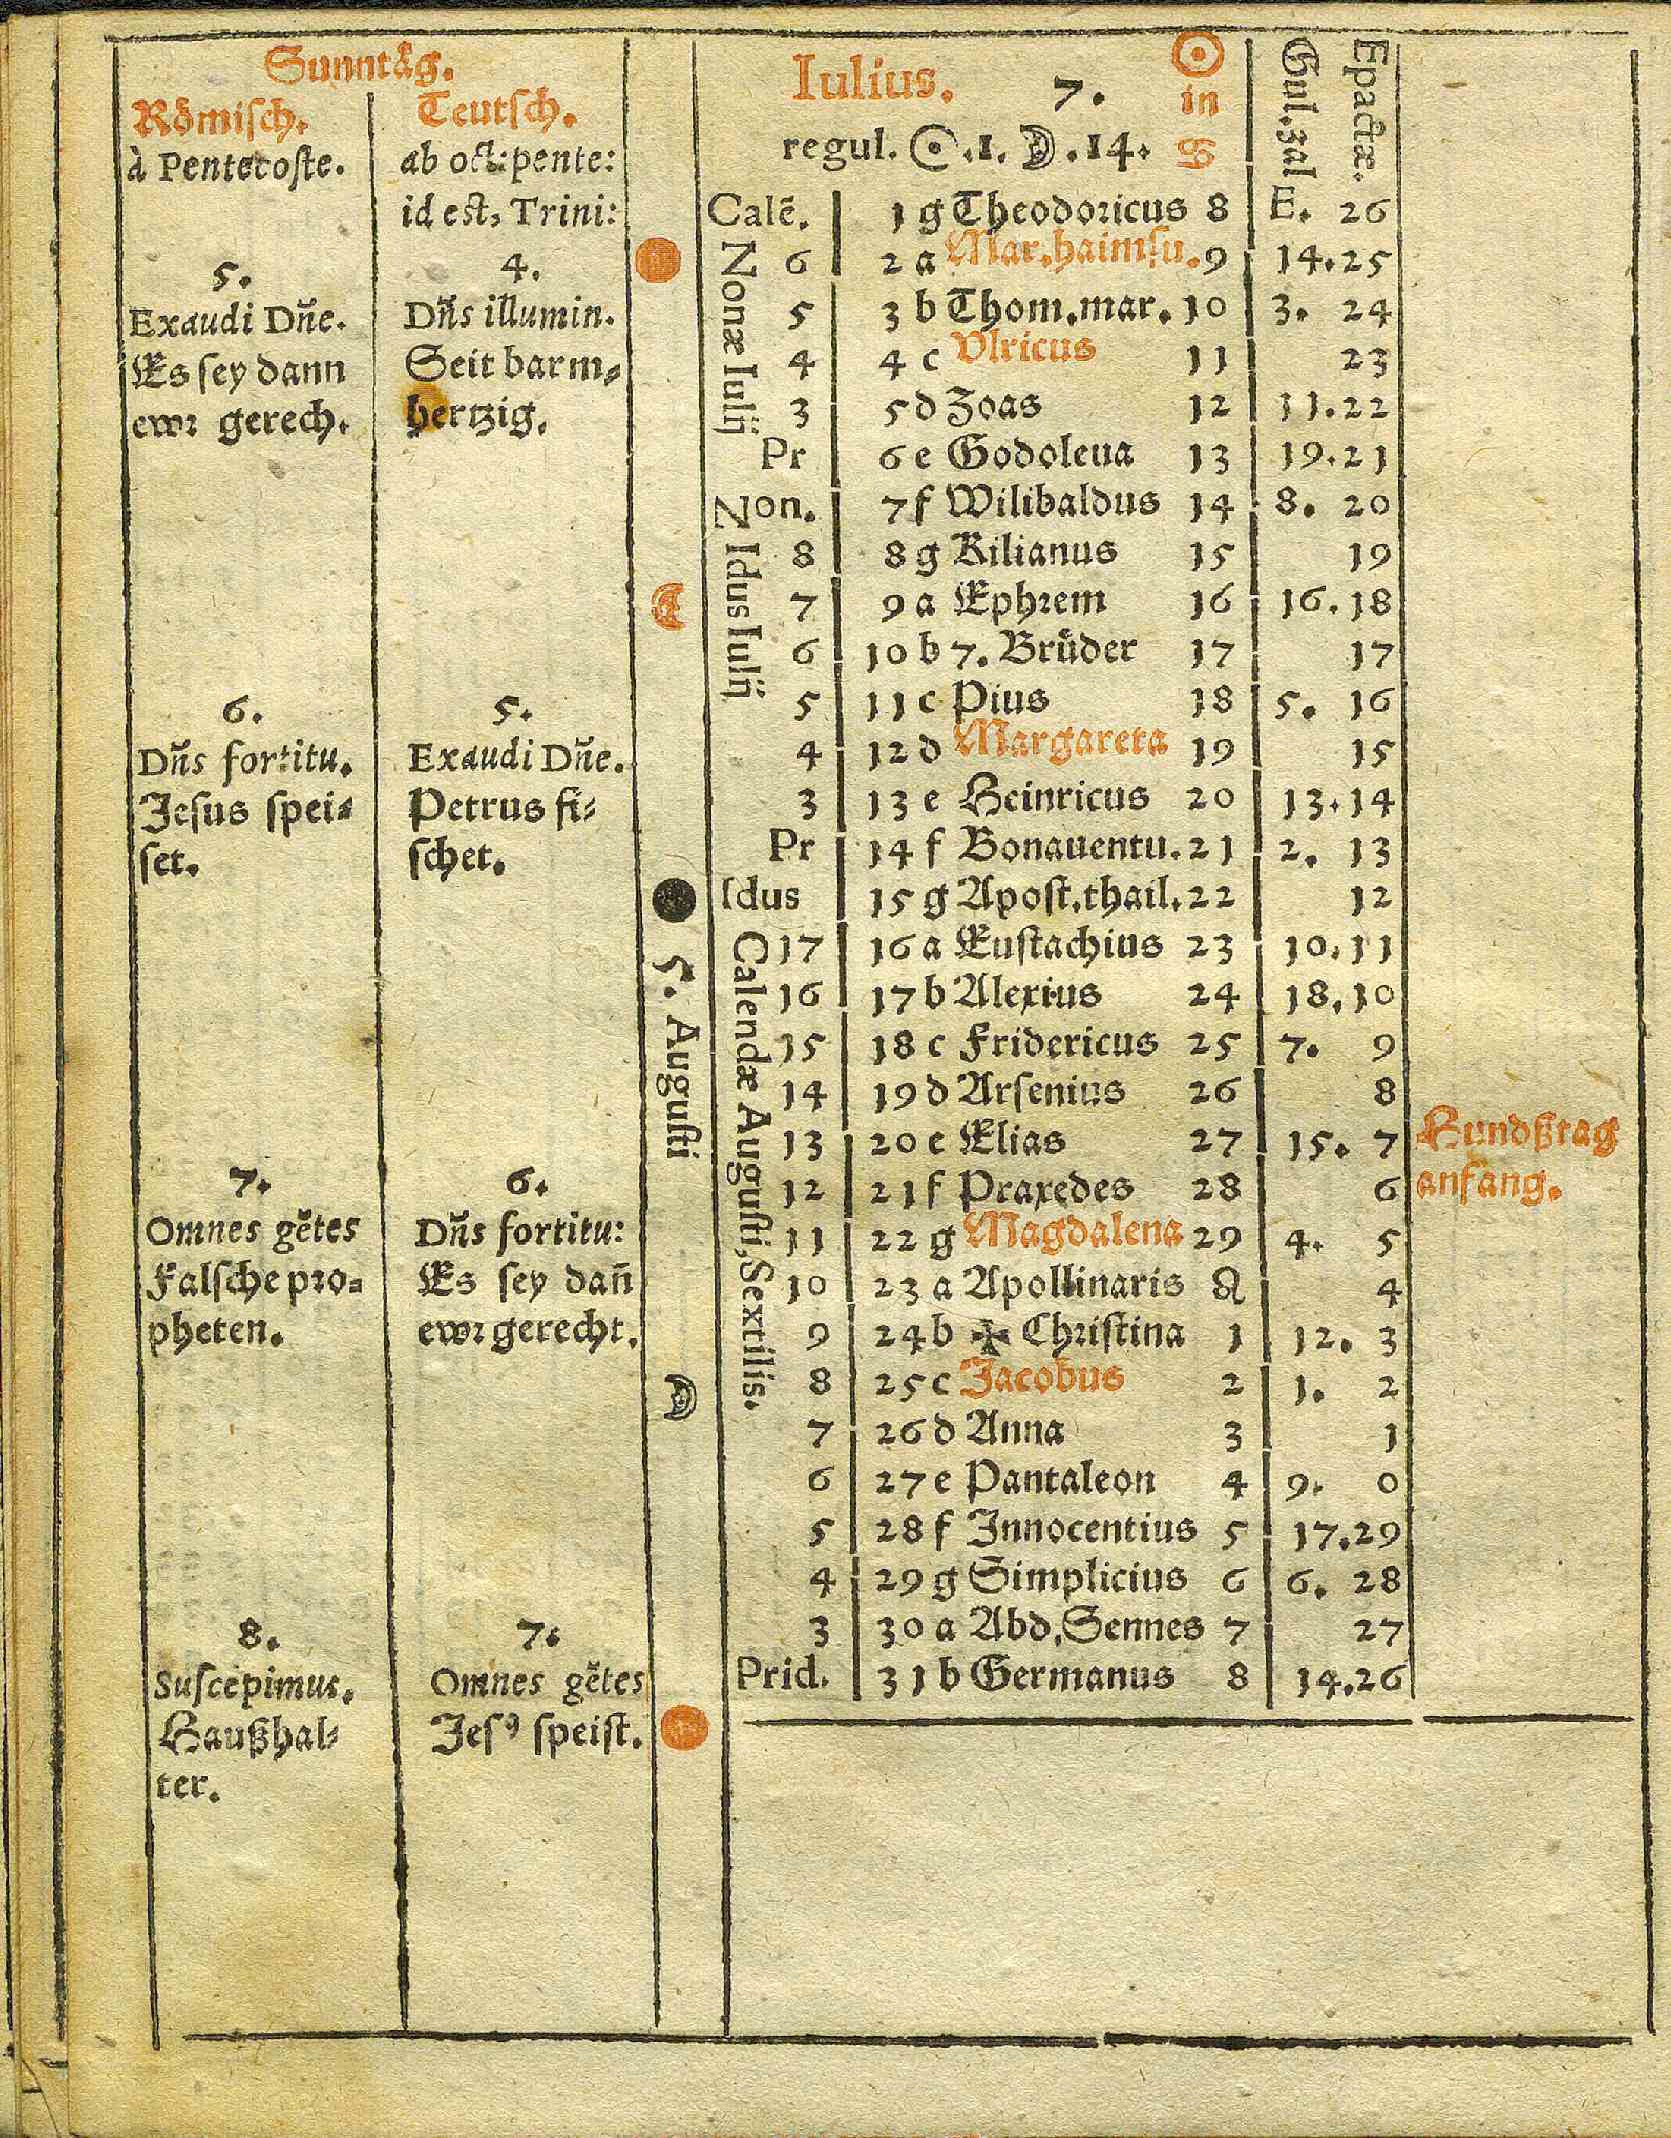 Sunntåg.
Römisch.
à Pentecoste.
5.
Exaudi Dñe.
Es sey dann
ewr gerech.
6.
Dñs fortitu.
Jesus spei-
set.
7.
Omnes gẽtes
Falsche pro-
pheten.
8.
Suscepimus.
Haußhal-
ter.
Teutsch.
ab oct: pente:
id est, Trini:
4.
Dñs illumin.
Seit barm-
hertzig.
5.
Exaudi Dñe.
Petrus fi-
schet.
6.
Dñs fortitu:
Es sey dañ
ewr gerecht.
7.
Omnes gẽtes
Jesꝰ speist.
5. Augusti
Iulius. 7. ☉ in ♋
regul. ☉.1. ☽.14.
Gul. zal
Epactæ.
Nonæ Iulij
Idus Iulij
Calendæ Augusti, Sextilis.
Calẽ. 1 g Theodoricus 8 E. 26
6 2 a Mar. haimsu. 9 14. 25
5 3 b Thom. mar. 10 3. 24
4 4 c Vlricus 11 23
3 5 d Zoas 12 11. 22
Pr 6 e Godoleua 13 19. 21
Non. 7 f Wilibaldus 14 8. 20
8 8 g Kilianus 15 19
7 9 a Ephrem 16 16. 18
6 10 b 7. Brüder 17 17
5 11 c Pius 18 5. 16
4 12 d Margareta 19 15
3 13 e Heinricus 20 13. 14
Pr 14 f Bonauentu. 21 2. 13
Idus 15 g Apost. thail. 22 12
17 16 a Eustachius 23 10. 11
16 17 b Alexius 24 18. 10
15 18 c Fridericus 25 7. 9
14 19 d Arsenius 26 8
13 20 e Elias 27 15. 7 Hundßtag
12 21 f Praxedes 28 6 anfang.
11 22 g Magdalena 29 4. 5
10 23 a Apollinaris ♌ 4
9 24 b ✠ Christina 1 12. 3
8 25 c Jacobus 2 1. 2
7 26 d Anna 3 1
6 27 e Pantaleon 4 9. 0
5 28 f Innocentius 5 17. 29
4 29 g Simplicius 6 6. 28
3 30 a Abd, Sennes 7 27
Prid. 31 b Germanus 8 14. 26